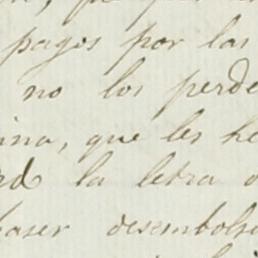 pagos por las
no los perde
ina, que les he
rd la letra
haser desembols